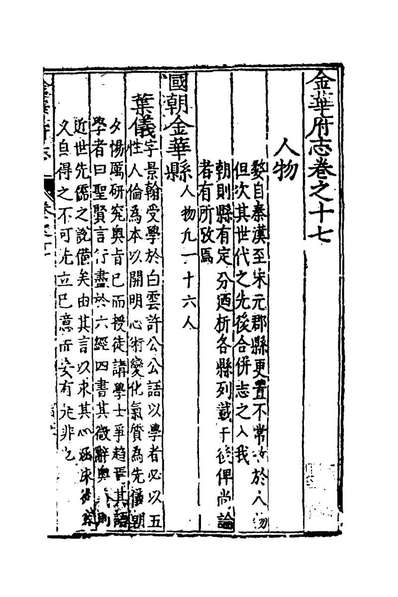 金華府志卷之十七
人物
婺自秦漢至宋元郡縣更置不常故於人物
但次其世代之先後合併志之入我
朝則縣有定分迺析各縣列載于後俾尚論
者有所攷焉
國朝金華縣人物九一十六人
葉儀字景翰受學於白雲許公公語以學者必以五
性人倫為本以開明心術變化氣質為先儀朝
夕惕厲研究奧旨已而授徒講學士爭趨其語
學者曰聖賢言行盡於六經四書其微辭奧則
近世先儒之說備矣由其言以求其心涵泳
久自得之不可先立已意而妄有是非也